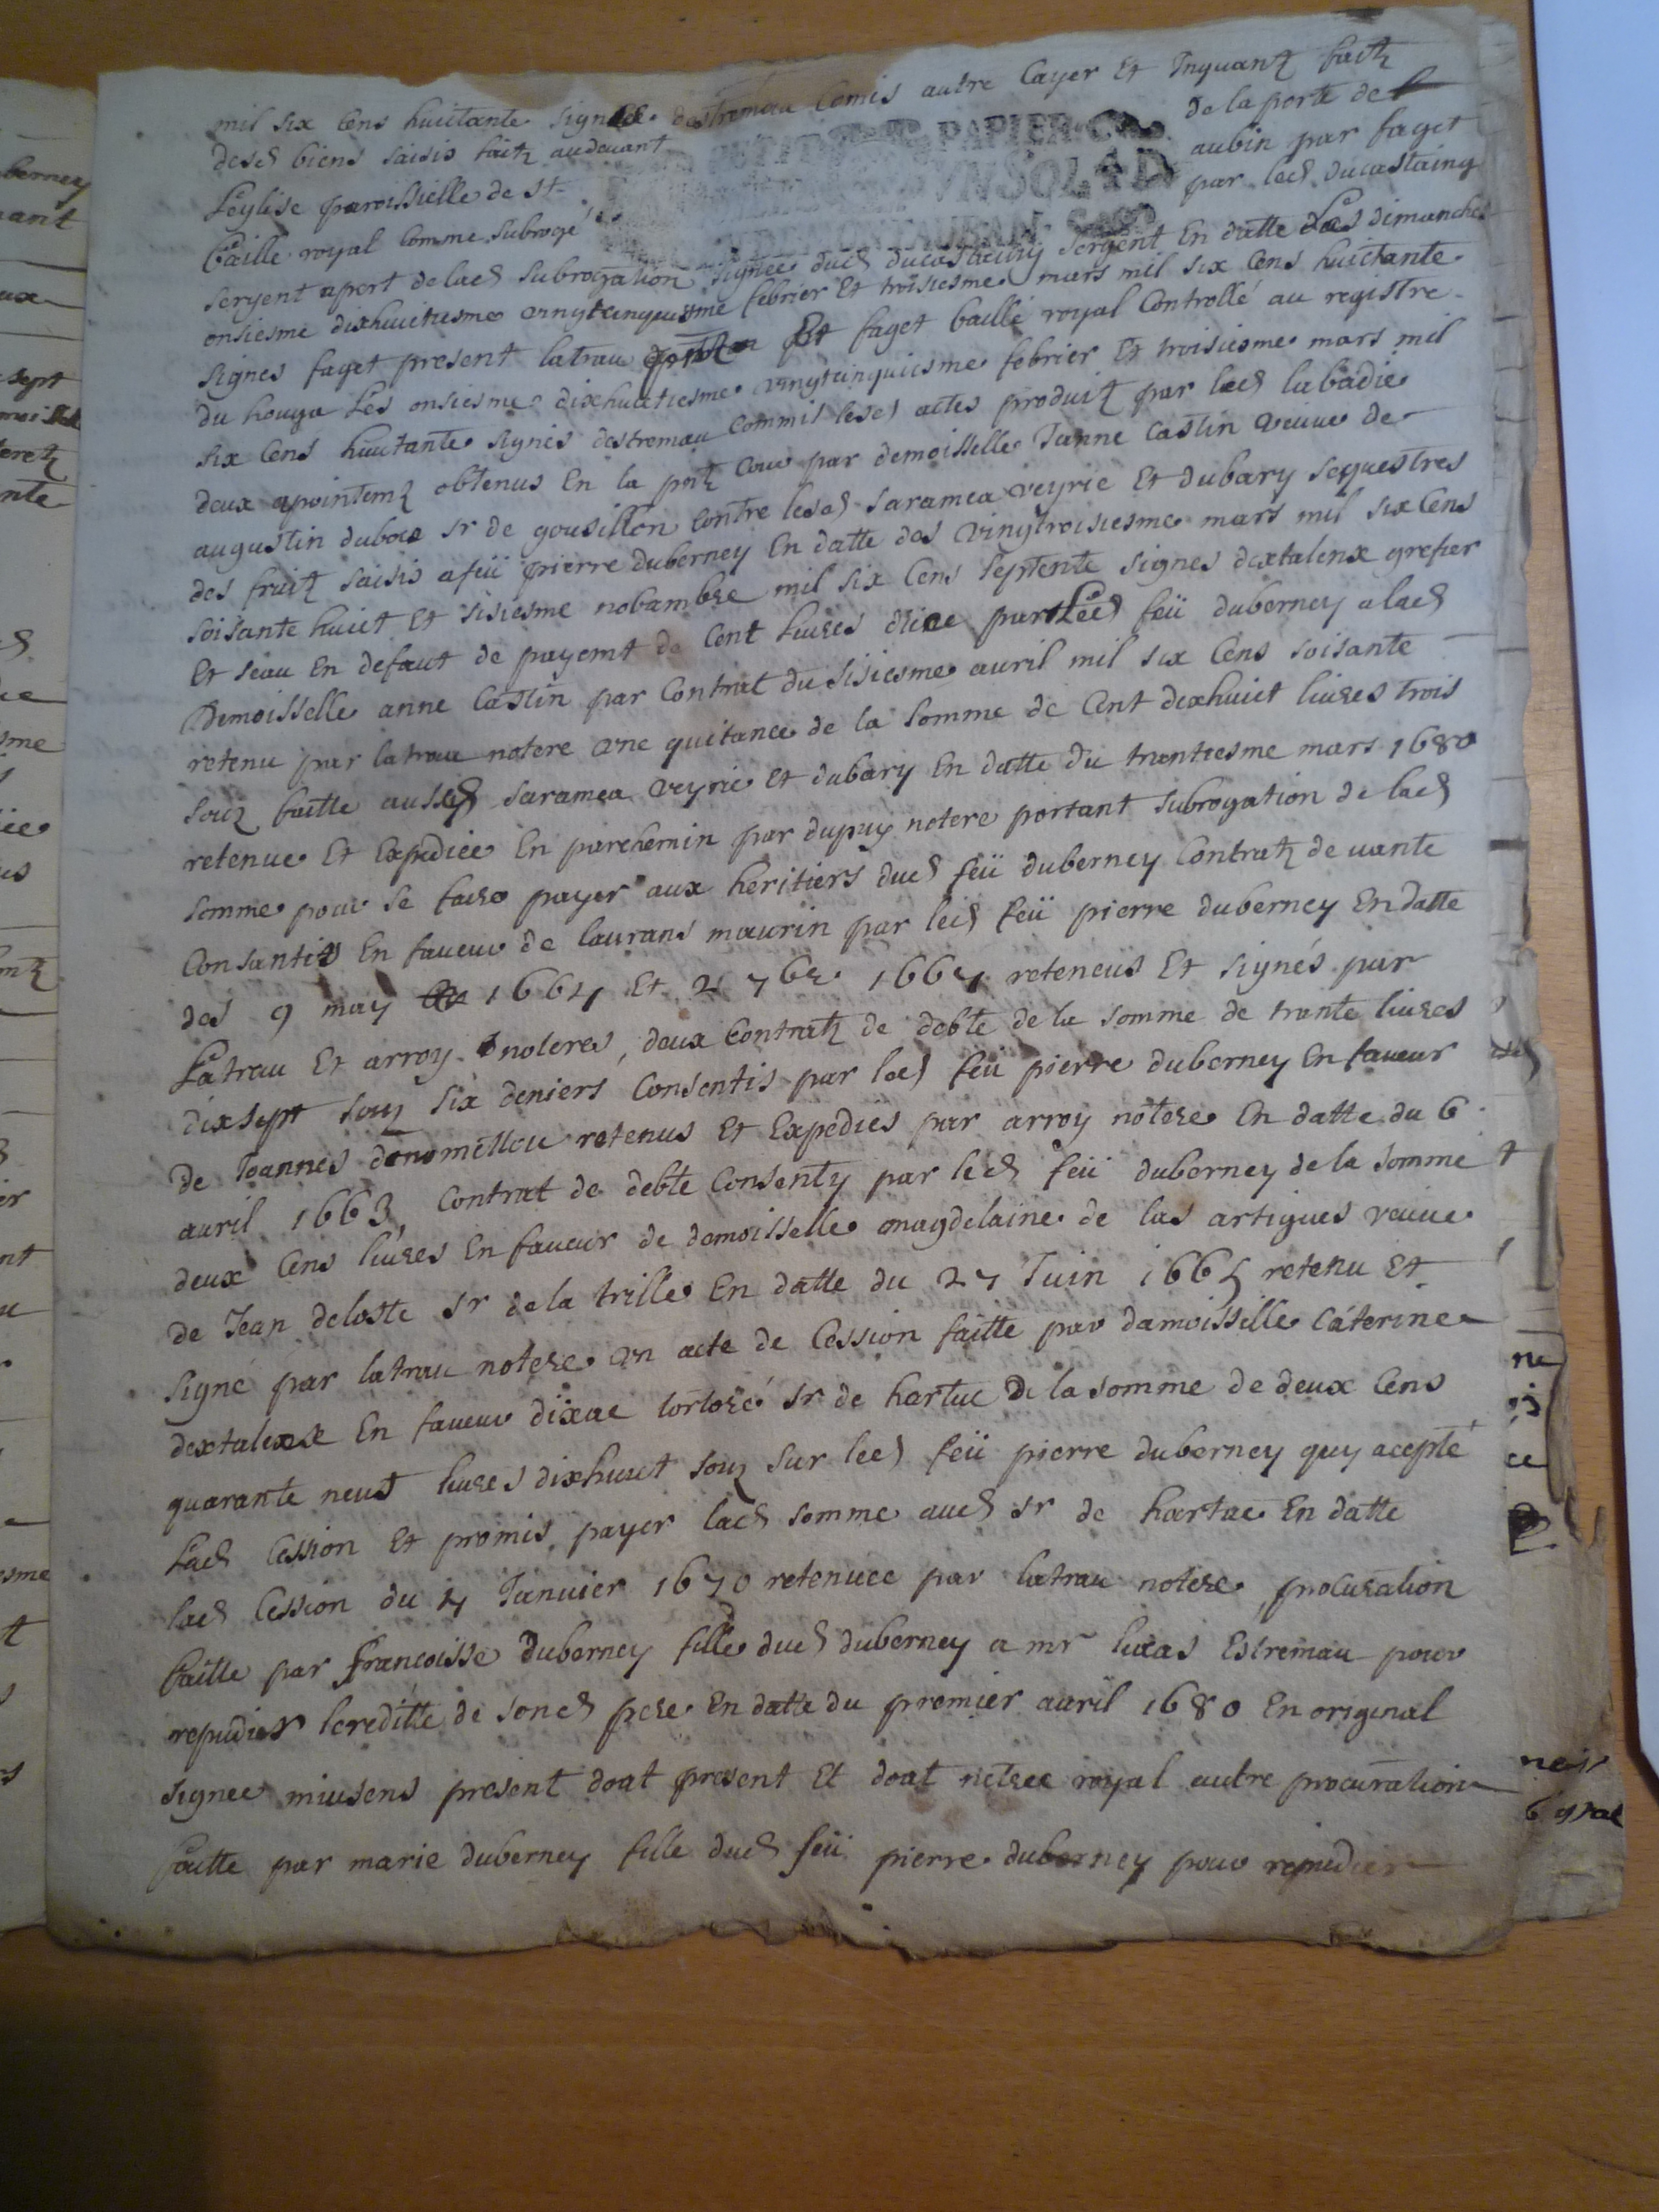 mil six Cens huictante signée destremau Comis autre Cayer Et Inquant faitz
desd biens saisis faitz audevant de la porte de
PETIT PAPIER
VN SOL 4 D
Leglise paroissielle de St aubin par faget
baille royal Comme subrogé par led ducastaing
sergent apert de lad subrogation signée dud ducastaing sergent En datte des dimanches
onsiesme dixhuictiesme vingtcinquiesme febrier Et troisiesme mars mil six Cens huictante
signes faget present latrau Et faget baille royal Controllé au registre
du houga Les onsiesme dixhuictiesme vingtcinquiesme febrier Et troisiesme mars mil
six Cens huictante signés destremau Commis lesd actes produitz par led labadie
deux apointemz obtenus En la pntz Cour par demoisselle Janne Castin veuve de
augustin dubou sr de gousillon Contre lesd saramea veyrie Et dubary sequestres
des fruitz saisis a feü pierre duberney En datte des vingtroisiesme mars mil six Cens
soisante huict Et sisiesme nobambre mil six Cens septente signes dextalenx grefier
Et seau En defaut de payemt de Cent livres par Led feü duberney a lad
Demoisselle anne Castin par Contrat du sisiesme auril mil six Cens soisante
retenu par latrau notere vne quitance de la somme de Cent dexhuict liures trois
souz faitte ausd saramea veyrie Et dubary En datte du trantiesme mars 1680
retenue Et Expediee En parchemin par dupuy notere portant subrogation de lad
somme pour se faire payer aux heritiers dud feü duberney Contratz de vante
Consantis En faueur de laurans maurin par led feü pierre duberney En datte
des 9 may 1664 Et 2 7bre 1667 reteneus Et signés par
Latrau Et arroy noteres, deux Contratz de debte de la somme de trante liures
dixsept souz six deniers Consentis par led feü pierre duberney En faueur
de Joannes retenus Et Expediés par arroy notere En datte du 6
auril 1663, Contrat de debte Consenty par led feü duberney de la somme
deux Cens liures En faueur de demoisselle magdelaine de las artigues veuue
de Jean deloste sr de la trille En datte du 27 Juin 1665 retenu Et
signé par latrau notere vn acte de Cession faitte par damoisselle Caterine
dextalenx En faueur dixac tortoré sr de hartuc De la somme de deux Cens
quarante neuf liures dixhuict souz sur led feü pierre duberney quy acepte
Lad Cession Et promis payer lad somme aud sr de hartac En datte
lad Cession du 17 Januier 1670 retenuee par latrau notere, procuration
faitte par francoisse Duberney fille dud duberney a mr lucas Estremau pour
repudier lereditté de sond pere En datte du premier auril 1680 En original
signee miusens present doat present Et doat notere royal autre procuration
faitte par marie duberney fille dud feü pierre duberney pour repudier